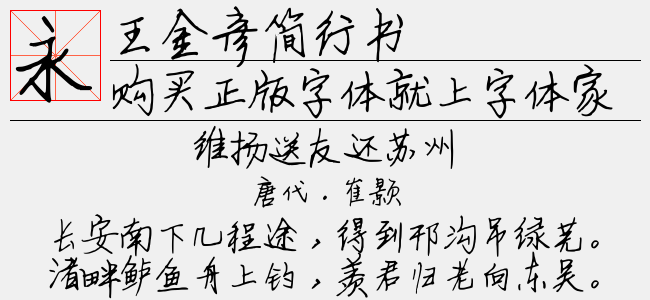 永
王金彦简行书
购买正版字体就上字体家
维扬送友还苏州
唐代．崔颢
长安南下几程途，得到邗沟吊绿芜。
渚畔鲈鱼舟上钓，羡君归老向东吴。